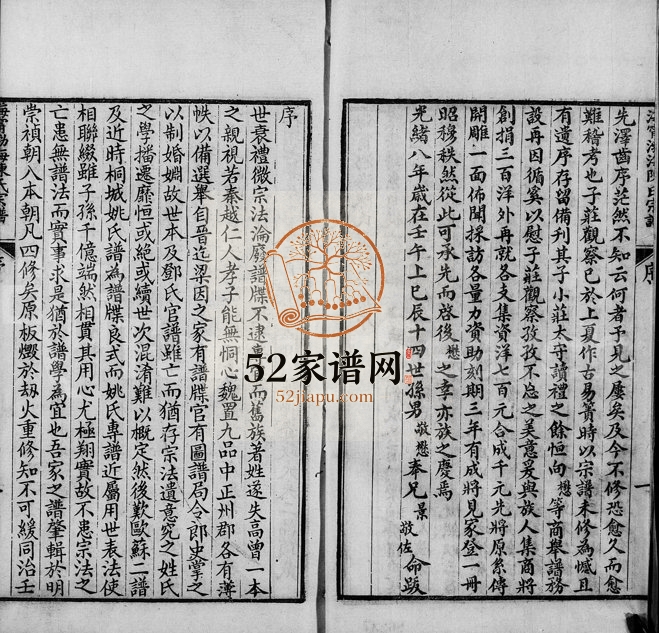 先澤齒序茫然不知云何者予見之屢矣及今不修恐愈久而愈
難稽考也子莊觀察已於上夏作古易簀時以宗譜未修為憾且
有遺序存留備刋其子小莊太守讀禮之餘恒向懋等商舉譜務
設再因循奚以慰子莊觀察孜孜不忘之美意爰與族人集商將
創捐三百洋外再就各支集資洋七百元合成千元先將原系傳
開雕一面佈聞採訪各量力資助刻期三年有成將見家登一冊
昭穆秩然從此可承先而啓後懋之幸亦族之慶焉
光緒八年歲在壬午上巳辰十四世孫男敬懋奉兄景敬佐命跋
序
世衰禮微宗法淪廢譜牒不逮而舊族著姓遂失高曾一本
之親視若秦越仁人孝子能無恫心魏置九品中正州郡各有薄
帙以備選舉自晉迄梁因之家有譜牒官有圖譜局令郎史掌之
以制婚姻故世本及鄧氏官譜雖亡而猶存宗法遺意究之姓氏
之學播遷靡恒或絶或續世次混淆難以概定然後歎歐蘇二譜
及近時桐城姚氏譜為譜牒良式而姚氏專譜近屬用世表法使
相聯綴雖子孫千億端然相貫其用心尤極翔實故不患宗法之
亡患無譜法而實事求是猶於譜學為宜也吾家之譜肇輯於明
崇禎朝入本朝凡四修矣原板燬於刼火重修知不可緩同治壬
序
一
52家谱网
52jiapu.com